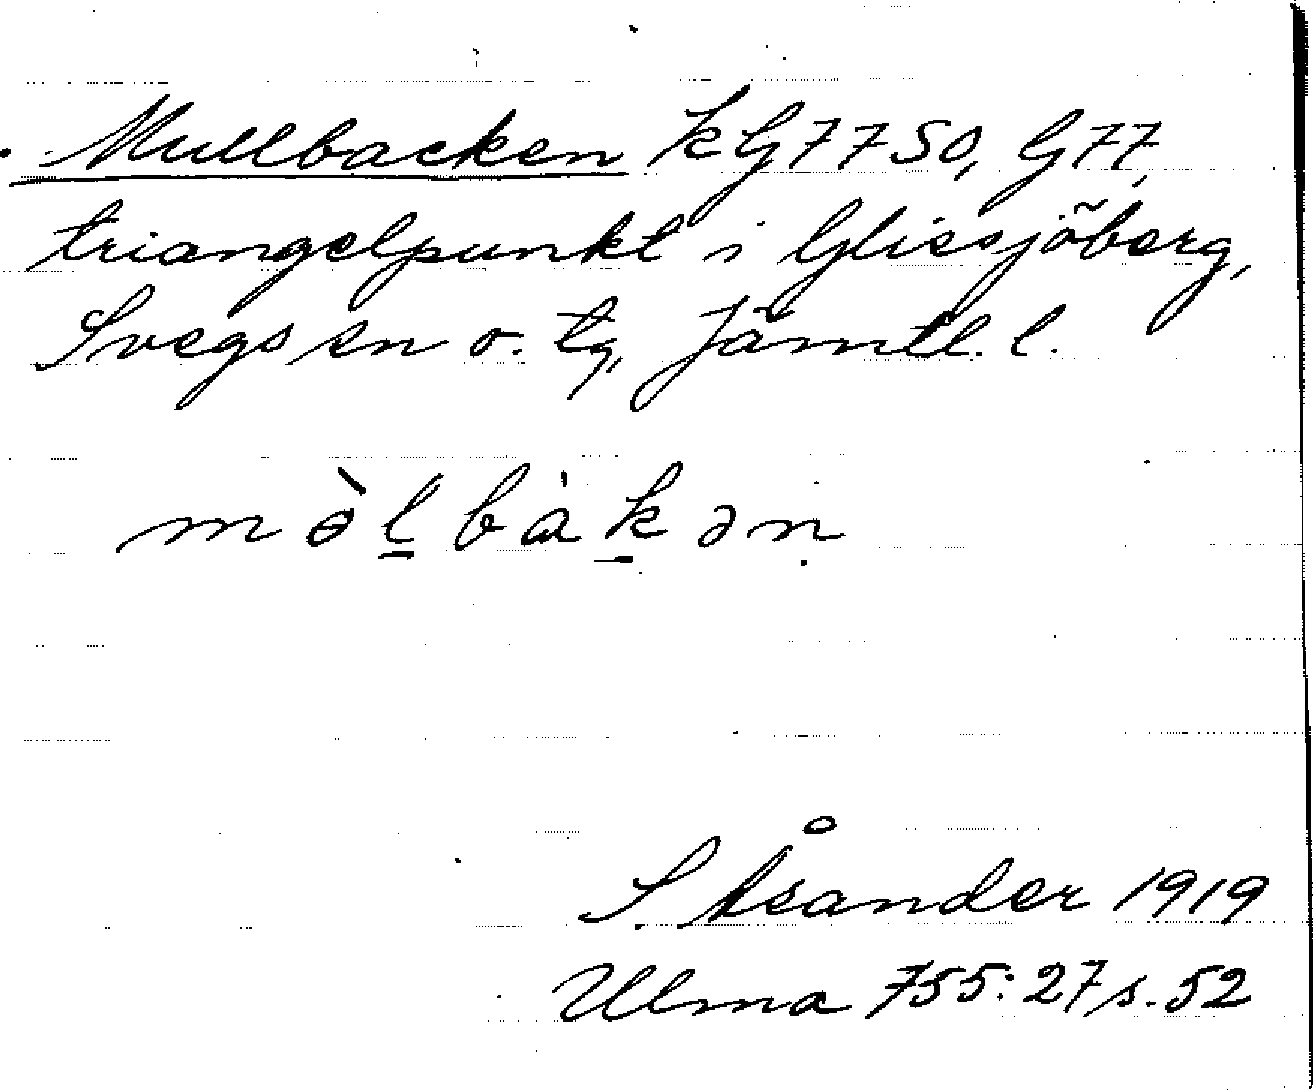 Mullbacken kG77SO, G77,
triangelpunkt i Glissjöberg,
Svegs sn o. tg, Jämtl. l.
mə̀l̲bàk̲ən
S. Åsander 1919
Ulma 755:27 s. 52